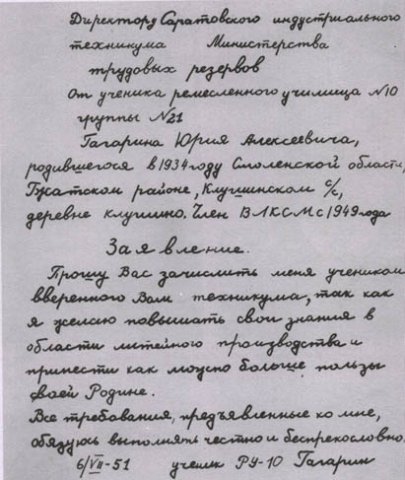 Директору Саратовского индустриального
техникума Министерства
трудовых резервов
От ученика ремесленного училища №10
группы №21
Гагарина Юрия Алексеевича,
родившегося в 1934 году Смоленской области,
Гжатском районе, Клушинском с/с,
деревне Клушино. Член ВЛКСМ с 1949 года
Заявление.
Прошу Вас зачислить меня учеником
вверенного Вам техникума, так как
я желаю повышать свои знания в
области литейного производства и
принести как можно больше пользы
своей Родине.
Все требования, предъявленные ко мне,
обязуюсь выполнять честно и беспрекословно.
6/VII-51 ученик РУ-10 Гагарин